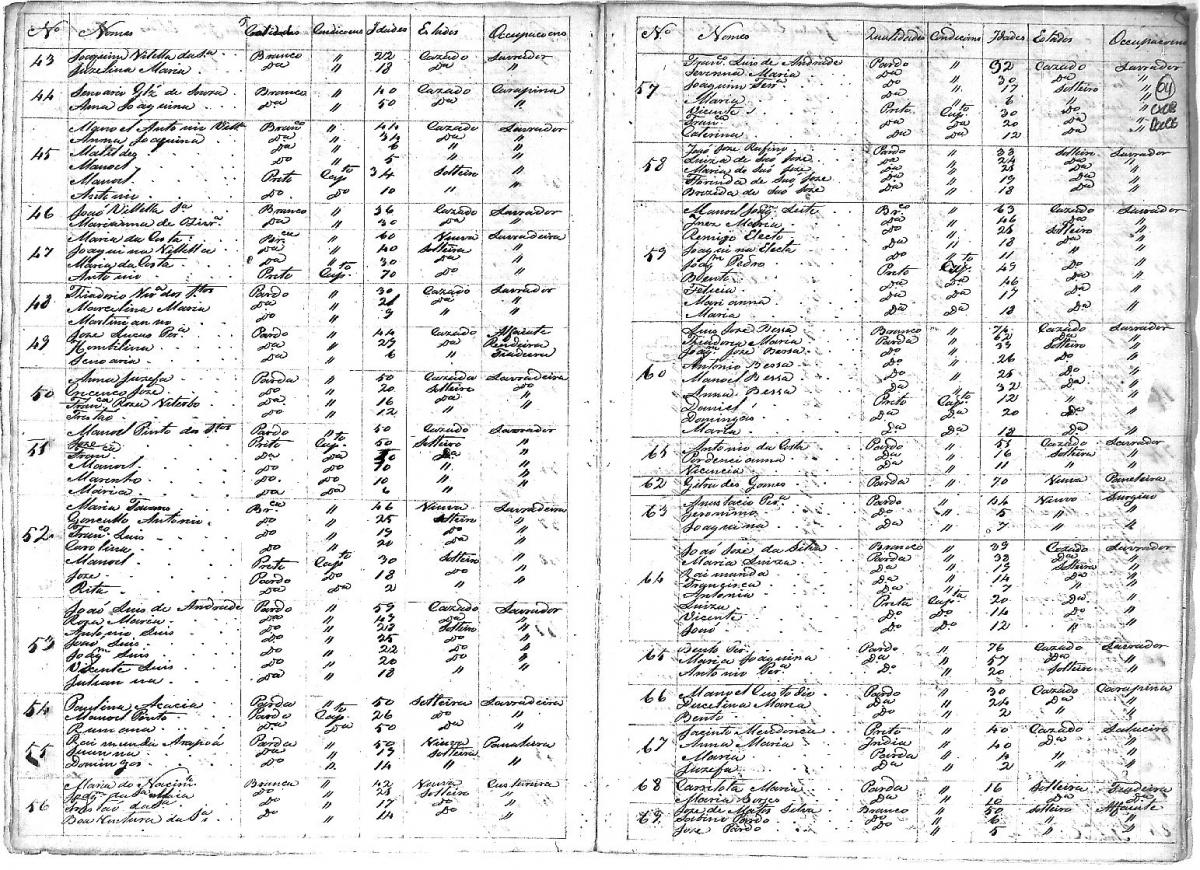 Nº Nomes Qualidades Condicoens Idades Estados Occupacoens
43 Joaquim Villela da Sª Branco " 22 Cazado Lavrador
Juzelina Maria Dª " 18 Dª "
44 Januario Glz de Souza Branco " 40 Cazado Carapina
Anna Joaquina Dª " 50 Dª "
45 Manoel Antonio " 44 Cazado Lavrador
Anna Joaquina Dª " 34 Dª "
Matildes Dª " 6 " "
Manoel Do " 5 " "
Manoel Preto Capto 34 Solteiro "
Antonio Do Do 10 " "
46 João Villella Sª Branco " 36 Cazado Lavrador
Marianna de Dª " 30 Dª "
47 Maria da Costa " 60 Viuva Lavradeira
Joaquina Villella Dª " 40 Solteira "
Maria da Costa Dª " 30 Dª "
Antonio Preto Capto 70 Do "
48 Pardo " 30 Cazado Lavrador
Marcelina Maria Dª " 21 Dª "
Martiniano " 9 " "
49 Joze Lucas Perª Pardo " 44 Cazado Alfaiate
Dª " 29 Dª Rendeira
Senoaria Dª " 6 " Fiadeira
50 Anna Juzefa Parda " 50 Cazada Lavradeira
Joze Do " 20 Solteiro "
Francª Roza Viterbo Dª " 16 Dª "
Tristão Do " 12 " "
51 Manoel Pinto dos Stos Pardo " 50 Cazado Lavrador
Joze Preto Capto 50 Solteiro "
Francª Dª Dª Dª "
Manoel Do Do 10 " "
Marinho Do Do 10 " "
Maria Dª Dª 6 " "
52 Maria Tavares " 46 Viuva Lavradeira
Goncallo Antonio Do " 25 Solteiro "
Franco Luis Do " 19 Do "
Carolina Dª " 20 Dª "
Manoel Preto Capto 30 Solteiro "
Joze Pardo Do 18 " "
Rita Dª Dª 2 " "
53 João Luis de Andrade Pardo " 59 Cazado Lavrador
Roza Maria Dª " 47 Dª "
Antonio Luis Do " 28 Solteiro "
João Luis Do " 25 Do "
Joaqm Luis Do " 22 Do "
Vicente Luis Do " 20 Do "
Julianna Dª " 18 Dª "
54 Paulina Acacia Parda " 50 Solteira Lavradeira
Manoel Pinto Pardo Capto 26 Do "
Rumana Dª " 50 Dª "
55 Raimunda Arapoá Parda " 50 Viuva Panaleira
Juanna Dª " 19 Solteira "
Domingos Do " 14 " "
56 Maria do Branca " 42 Viuva Custureira
" 25 Solteiro "
Tristão da Sª Do " 17 Do "
Boa Ventura da Sª Do " 14 Do "
Nº Nomes Quallidades Condicoins Idades Estados Occupacoens
57 Franco Luis de Andrade Pardo " 92 Cazado Lavrador
Severina Maria Dª " 30 Dª "
Joaquim Ferª Do " 17 Solteiro "
Maria Dª " 6 " "
Vicente Preto Capto 30 Do "
Francª Dª Dª 20 Dª "
Caterina Dª Dª 12 "
58 João Joze Rufino Pardo " 33 Solteiro Lavrador
Luiza de São Joze Dª " 24 Dª "
Maria de São Joze Dª " 25 Dª "
Florinda de São Joze Dª " 19 Dª "
Brizida de São Joze Dª " 18 Dª "
59 Manoel Joaqm Leite " 63 Cazado Lavrador
Ines Maria Dª " 46 Dª "
Remigio Electo Do " 25 Solteiro "
Joaquina Electa Dª " 18 Dª "
Joaqm Pedro Do " 11 " "
Bento Preto Capto 49 Do "
Felicia Dª Dª 46 Dª "
Marianna Dª Dª 17 Dª "
Maria Dª Dª 18 Dª "
60 Luis Joze Bessa Branco " 74 Cazado Lavrador
Theodoria Maria Parda " 62 Dª "
Joaqm Joze Bessa Do " 33 Solteiro "
Antonio Bessa Do " 26 Do "
Manoel Bessa Do " 25 Do "
Anna Bessa Dª " 32 Dª "
Daniel Preto Capto 12 " "
Domingos Do Do 20 Do "
Maria Dª Dª 12 Dª "
61 Antonio da Costa Pardo " 55 Cazado Lavrador
Perdenciana Dª " 16 Solteira "
Vicencia Dª " 11 " "
62 Getrudes Gomes Parda " 70 Viuva Paneleira
63 Anustacio Perª Pardo " 44 Viuvo Surgião
Geronimo Do " 5 " "
Joaquina Dª " 7 " "
64 João Joze da Silva Branco " 39 Cazado Lavrador
Maria Luiza Parda " 38 Dª "
Raimunda Dª " 19 Solteira "
Francisca Dª " 14 Dª "
Antonia Dª " 7 " "
Luiza Preta Capta 20 Dª "
Vicente Do Do 14 Do "
João Do Do 12 " "
65 Bento Perª Pardo " 76 Cazado Lavrador
Maria Joaquina Dª " 57 Dª "
Antonio Perª Do " 20 Solteiro "
66 Manoel Custodio Pardo " 30 Cazado Carapina
Dª " 24 Dª "
Bento Do " 2 " "
67 Jacinto Mendonca Preto " 40 Cazado
Anna Maria India " 40 Dª "
Maria Parda " 4 " "
Juzefa Dª " 2 " "
68 Carllota Maria Parda " 16 Solteira Fiadeira
Maria Borges Dª " 10 Dª Dª
69 Joze de Silva Branco " 50 Solteiro Alfaiate
Pardo Do " 6 " "
Joze Pardo Do " 5 " "